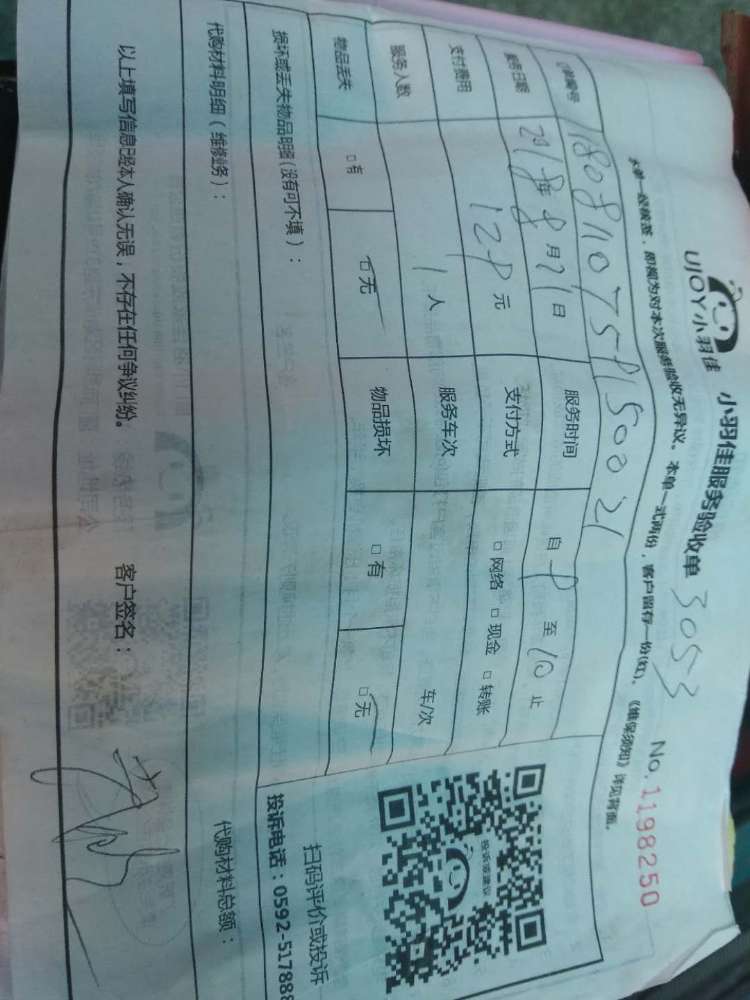 UJOY小羽佳 小羽佳服务验收单 3053 No.1198250
本单一经核签，即视为对本次服务验收无异议。本单一式两份，客户留存一份(红)。《维保须知》详见背面。
订单编号
服务日期 年8月21日 服务时间 自 至10止
支付费用 128元 支付方式 □网络 □现金 □转账
服务人数 1人 服务车次 车/次
物品丢失 □有 □无 物品损坏 □有 □无
损坏或丢失物品明细(没有可不填)：
代购材料明细(维修业务)： 代购材料总额：
以上填写信息已经本人确认无误，不存在任何争议纠纷。 客户签名：
投诉或建议
扫码评价或投诉
投诉电话：0592-517888